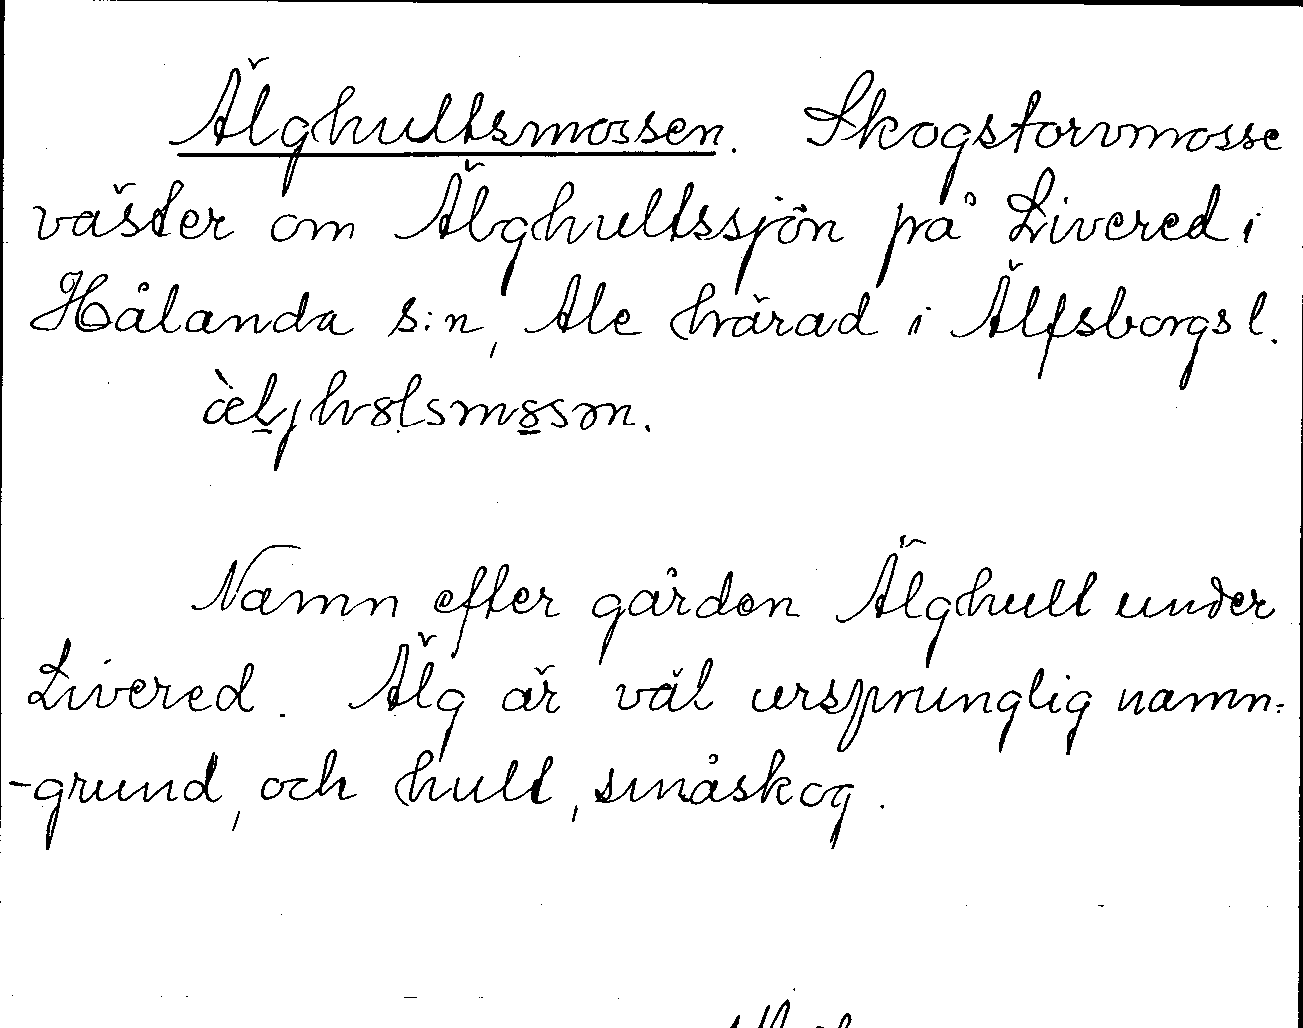 Älghultsmossen. Skogstorvmosse
väster om Älghultssjön på Livered i
Hålanda s:n, Ale härad i Älfsborgs l.
æ̀ljhɷlsmɷsən.
Namn efter gården Älghult under
Livered. Älg är väl ursprunglig namn-
-grund, och hult, småskog.